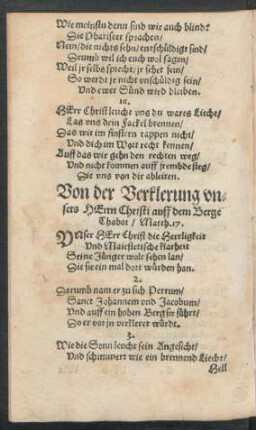 Wie meinstu denn sind wir auch blind?
Die Phariseer sprachen/
Nein/die nichts sehn/entschüldigt sind/
Drumb wil ich euch wol sagen/
Weil jr selbs sprecht/jr sehet fein/
So werdt jr nicht unschüldig sein/
Und ewer Sünd wird bleiben.
16.
HErr Christ leucht uns du wares Liecht/
Las uns dein Fackel brennen/
Das wir im finstern tappen nicht/
Und dich im Wort recht kennen/
Auff das wir gehn den rechten weg/
Und nicht kommen auff frembde steg/
Die uns von dir ableiten.
Von der Verklerung vn-
sers HErrn Christi auff dem Berge
Thabor / Matth. 17.
UNser HErr Christ die Herrligkeit
Und Maiestetische klarheit
Seine Jünger wolt sehen lan/
Die sie ein mal dort würden han.
2.
Darumb nam er zu sich Petrum/
Sanct Johannem und Jacobum/
Und auff ein hohen Berg sie führt/
Do er vor jn verkleret würdt.
3.
Wie die Sonn leuchte sein Angesicht/
Und schimmert wie ein brennend Liecht/
Hell